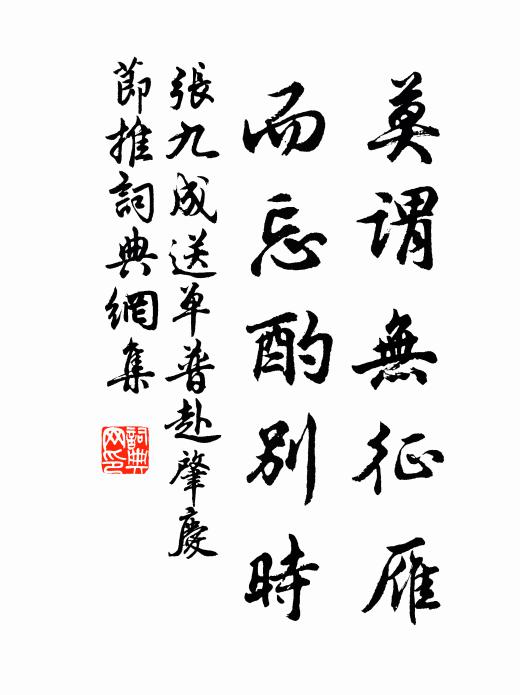 莫謂無征雁
而忘酌別時
張九成送单普赴肇慶
節推詞典網集
詞典网印